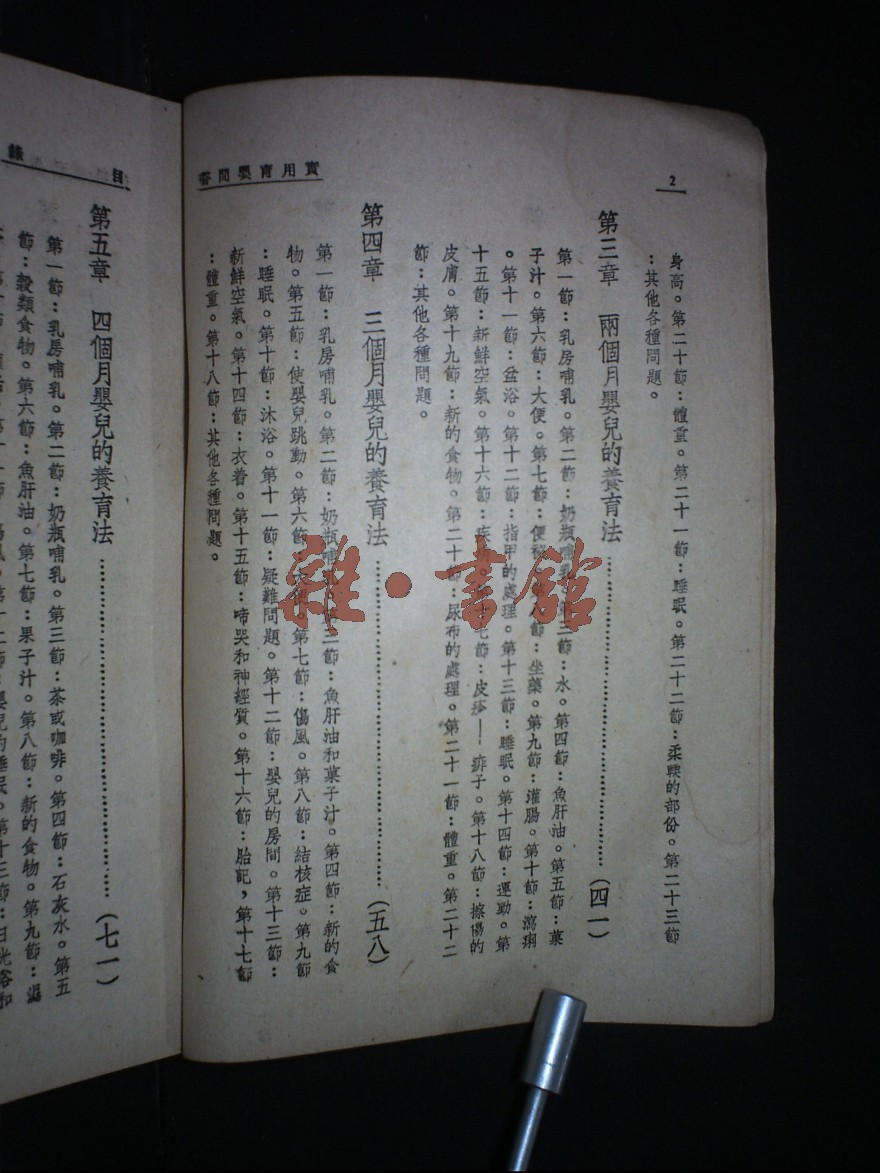 2
實用育嬰問答
身高。第二十節：體重。第二十一節：睡眠。第二十二節：柔輭的部份。第二十三節
：其他各種問題。
第三章　兩個月嬰兒的養育法……（四一）
第一節：乳房哺乳。第二節：奶瓶哺乳。第三節：水。第四節：魚肝油。第五節：菓
子汁。第六節：大便。第七節：便秘。第八節：坐藥。第九節：灌腸。第十節：瀉痢
。第十一節：盆浴。第十二節：指甲的處理。第十三節：睡眠。第十四節：運動。第
十五節：新鮮空氣。第十六節：疾病。第十七節：皮疹——痱子。第十八節：擦傷的
皮膚。第十九節：新的食物。第二十節：尿布的處理。第二十一節：體重。第二十二
節：其他各種問題。
第四章　三個月嬰兒的養育法……（五八）
第一節：乳房哺乳。第二節：奶瓶哺乳。第三節：魚肝油和菓子汁。第四節：新的食
物。第五節：使嬰兒跳動。第六節：大便。第七節：傷風。第八節：結核症。第九節
：睡眠。第十節：沐浴。第十一節：疑難問題。第十二節：嬰兒的房間。第十三節：
新鮮空氣。第十四節：衣着。第十五節：啼哭和神經質。第十六節：胎記，第十七節
：體重。第十八節：其他各種問題。
目 錄
第五章　四個月嬰兒的養育法……（七一）
第一節：乳房哺乳。第二節：奶瓶哺乳。第三節：茶或咖啡。第四節：石灰水。第五
節：穀類食物。第六節：魚肝油。第七節：果子汁。第八節：新的食物。第九節：
第十二節：嬰兒的睡眠。第十三節：日光浴和
雜·書館